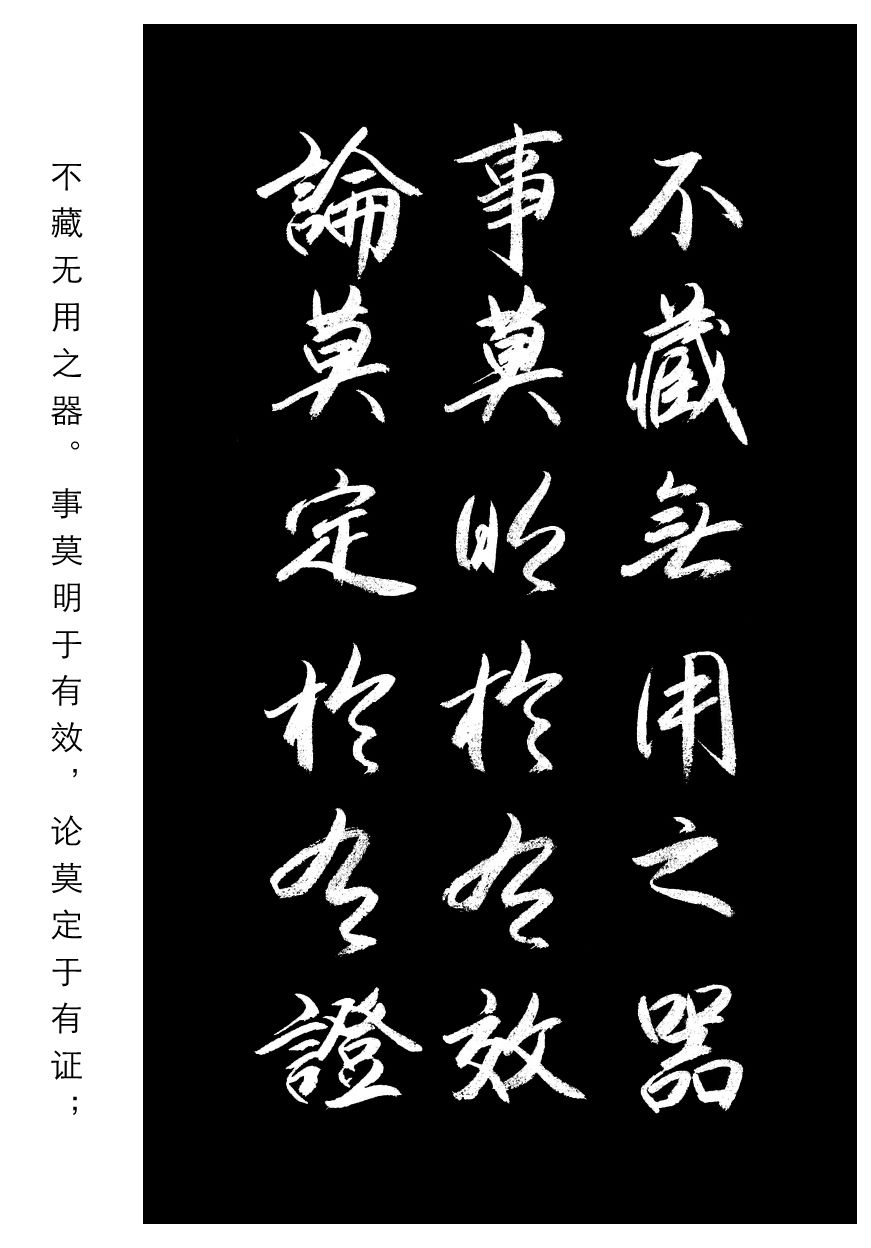 不藏無用之器
事莫明於有效
論莫定於有證
不藏无用之器。事莫明于有效，论莫定于有证；